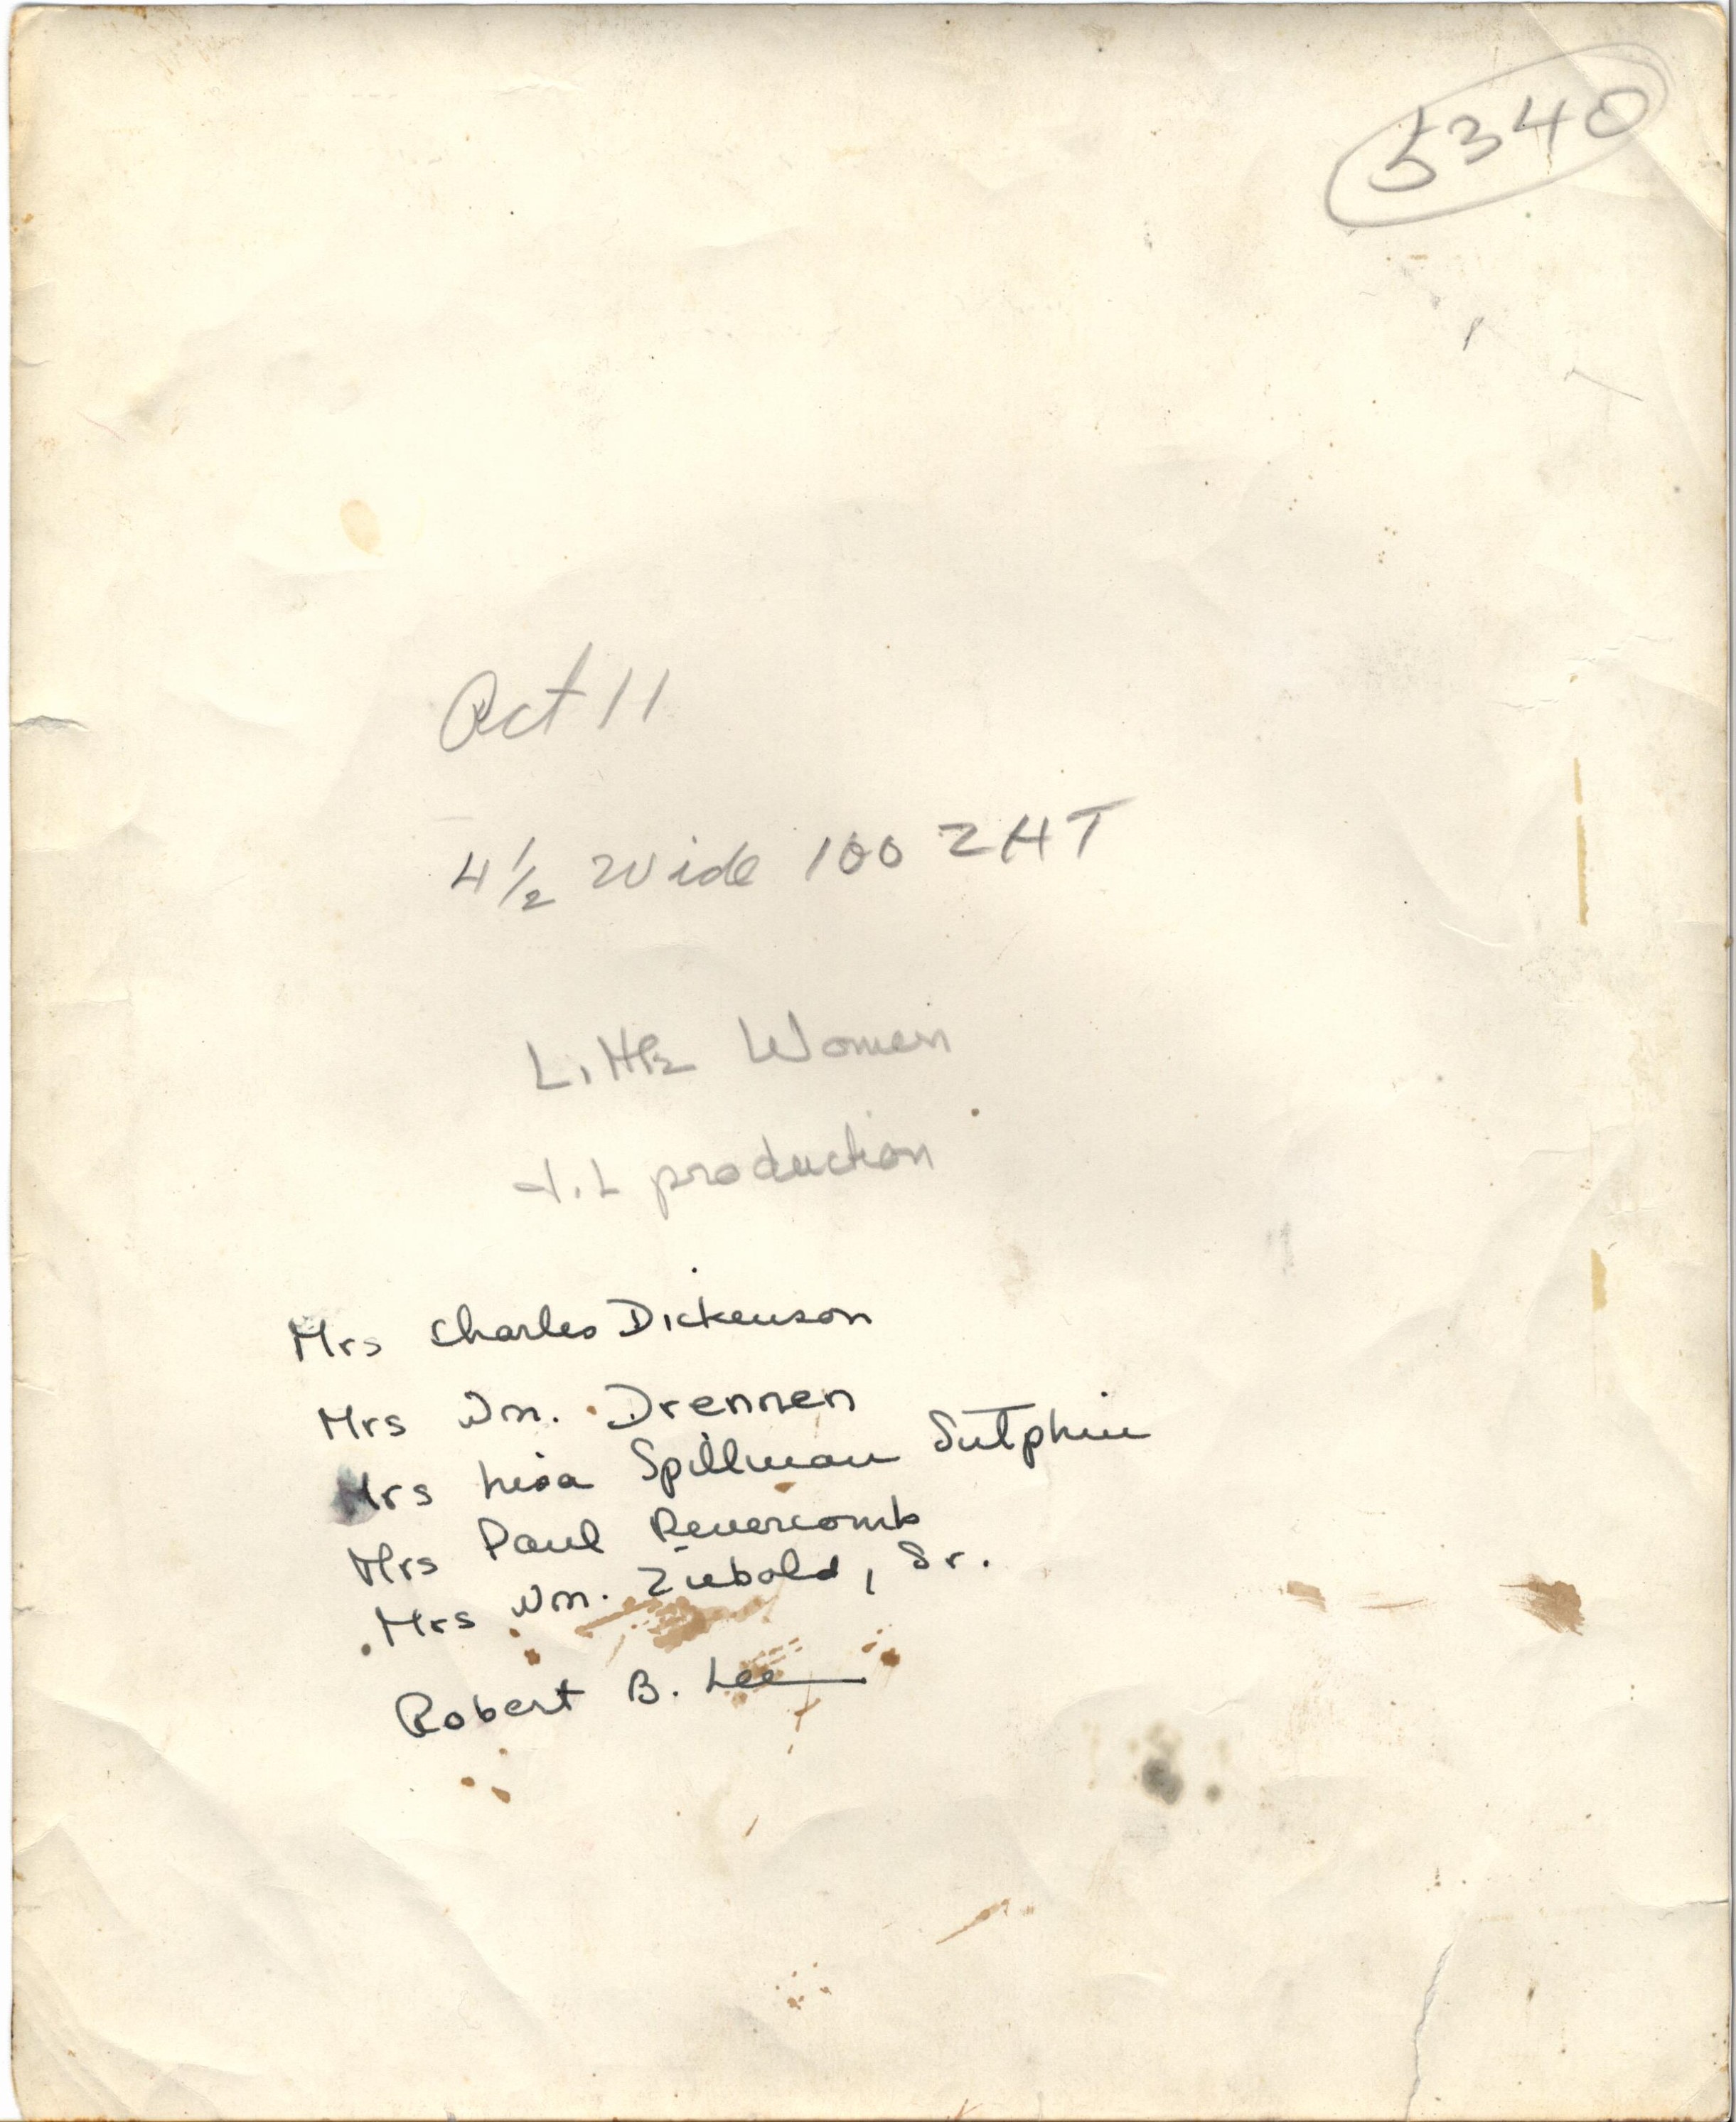 5340
Act 11
4 1/2 Wide 100 Z HT
Little Women
J.L production
Mrs Charles Dickenson
Mrs Wm. Drennen
Mrs Lisa Spillman Sutphin
Mrs Paul Revercomb
Mrs Wm. Ziebold, Sr.
Robert B. Lee